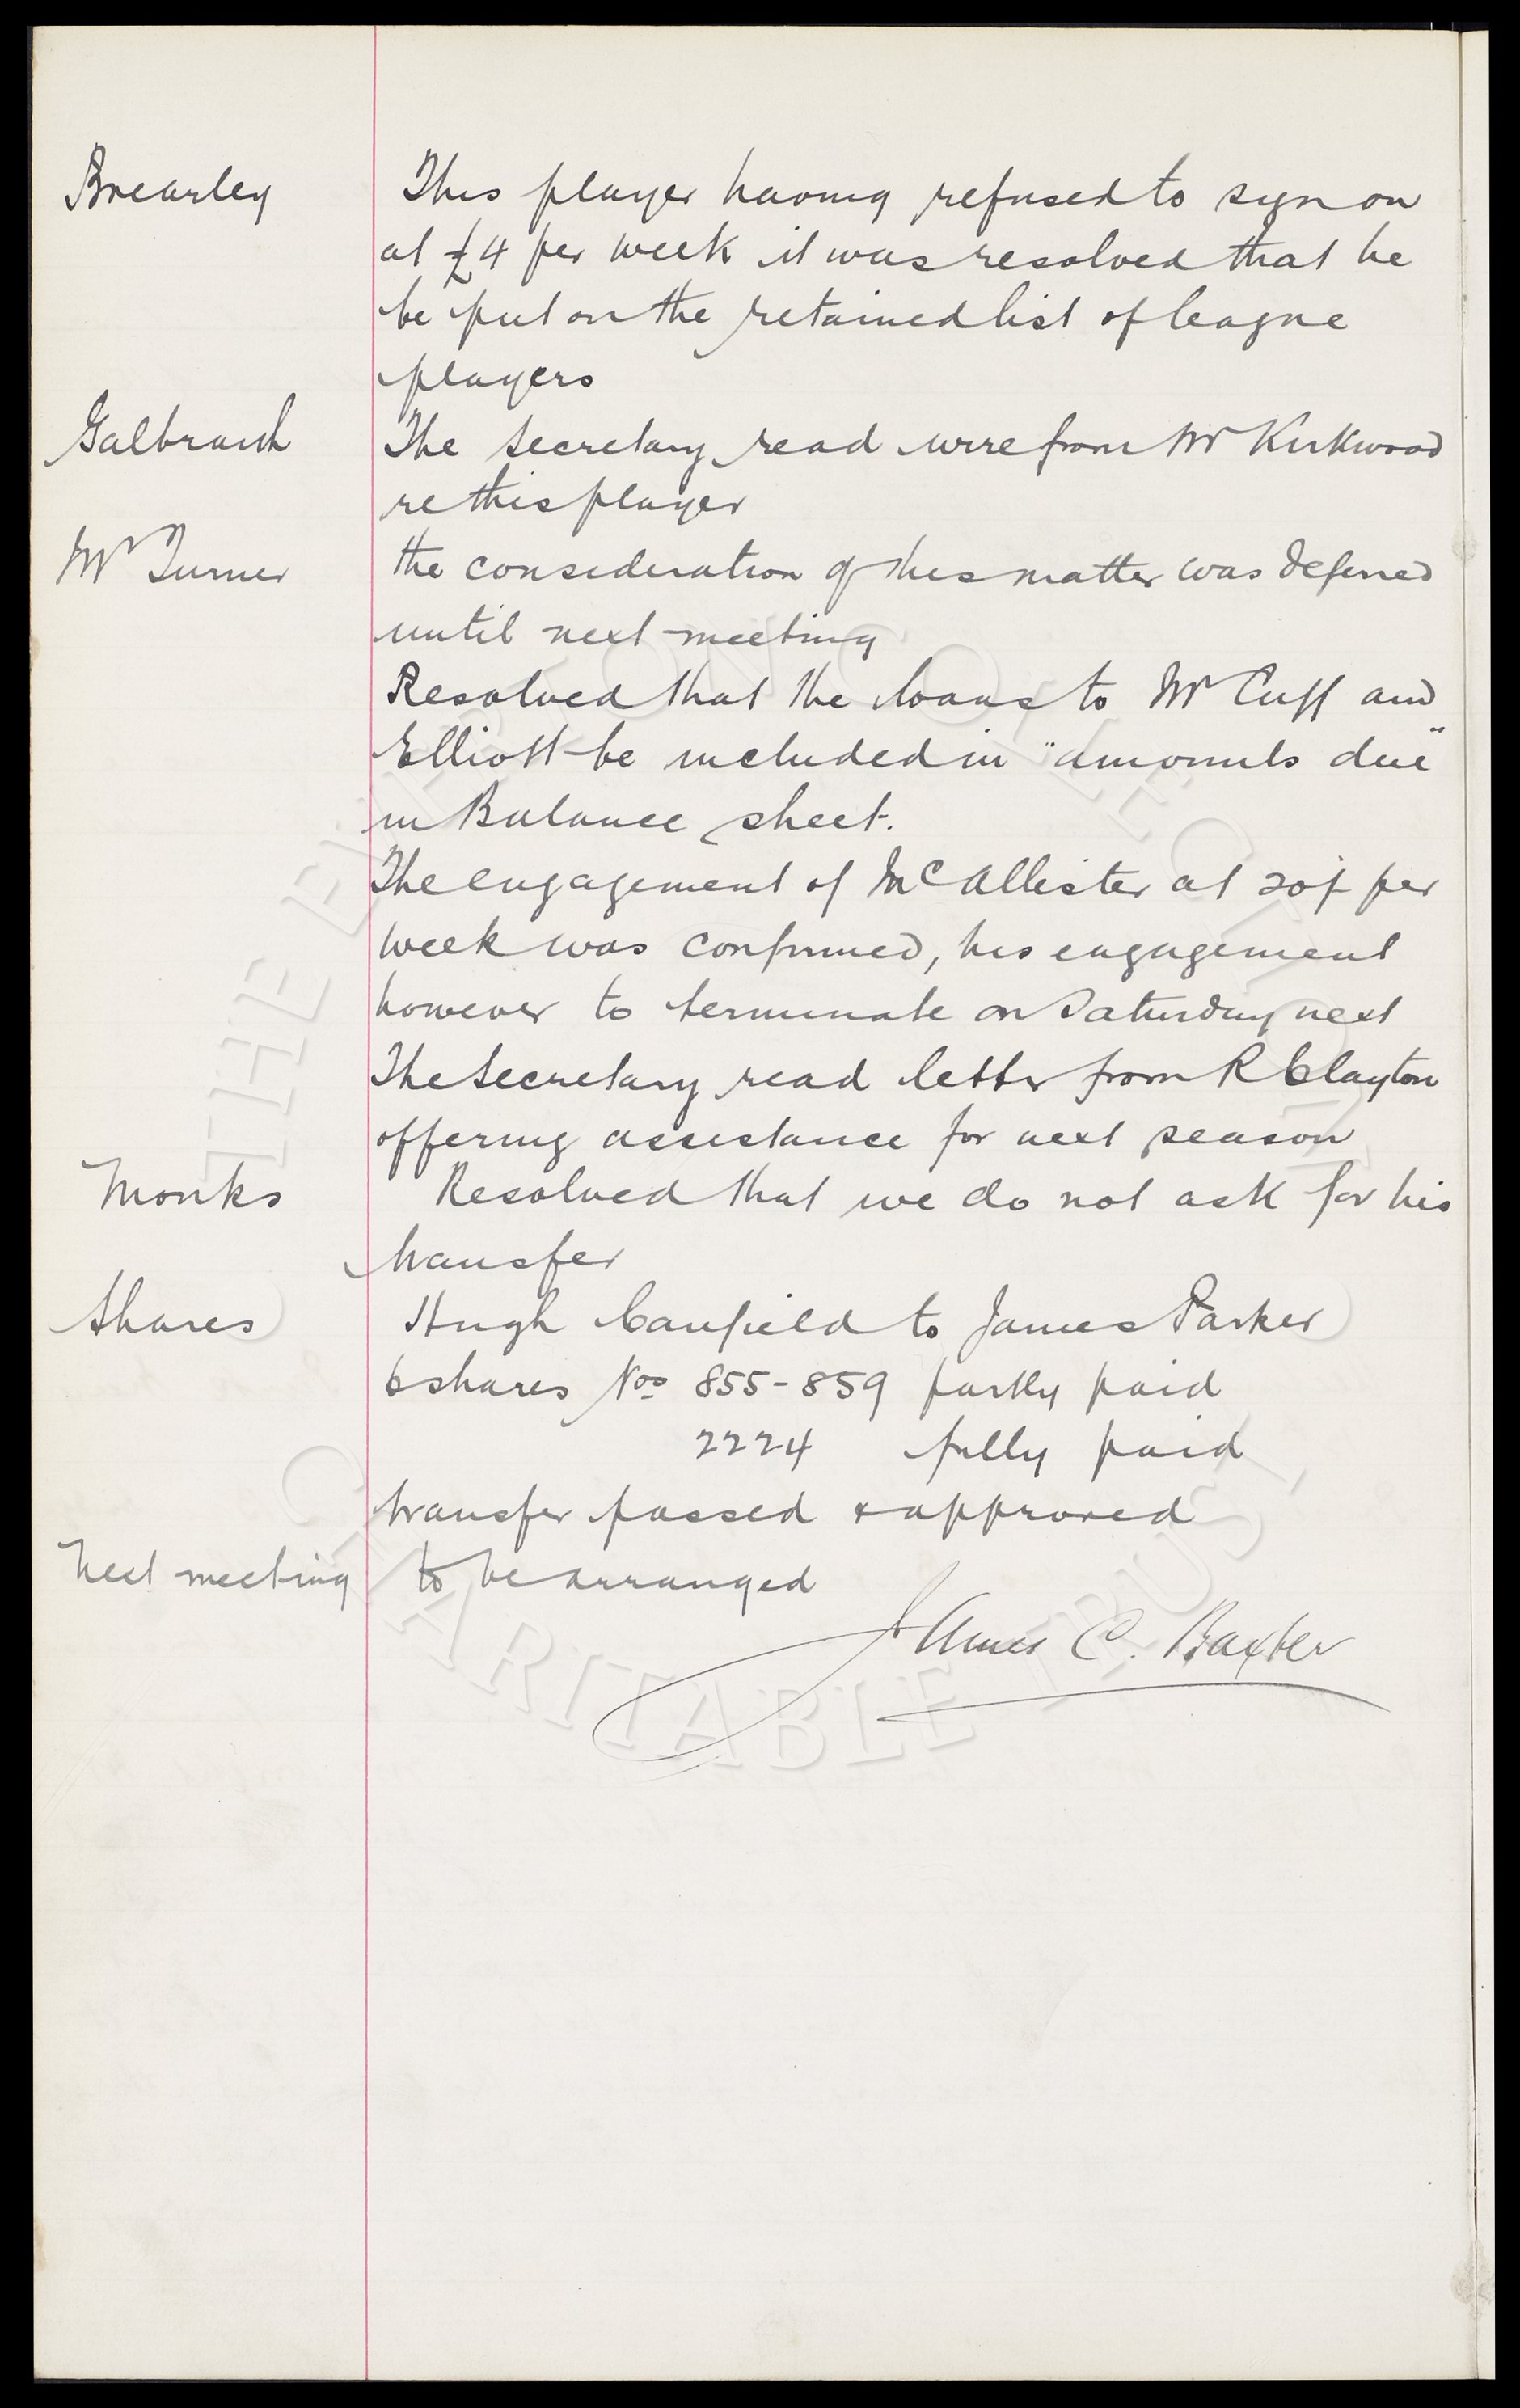 Brearley This player having refused to sign on
at £4 per week it was resolved that he
be put on the retained list of league
players
Galbraith The Secretary read wire from Mr Kirkwood
re this player
Mr Turner the consideration of this matter was deferred
until next meeting
Resolved that the loans to Mr Cuff and
Elliott be included in "amounts due"
in Balance sheet.
The engagement of McAllister at 20/- per
week was confirmed, his engagement
however to terminate on Saturday next
The Secretary read letter from R Clayton
offering assistance for next season
Monks Resolved that we do not ask for his
transfer
Shares Hugh Canfield to James Parker
6 shares Nos 855-859 partly paid
2224 fully paid
transfer passed & approved
Next meeting to be arranged
James C. Baxter
THE EVERTON COLLECTION
CHARITABLE TRUST